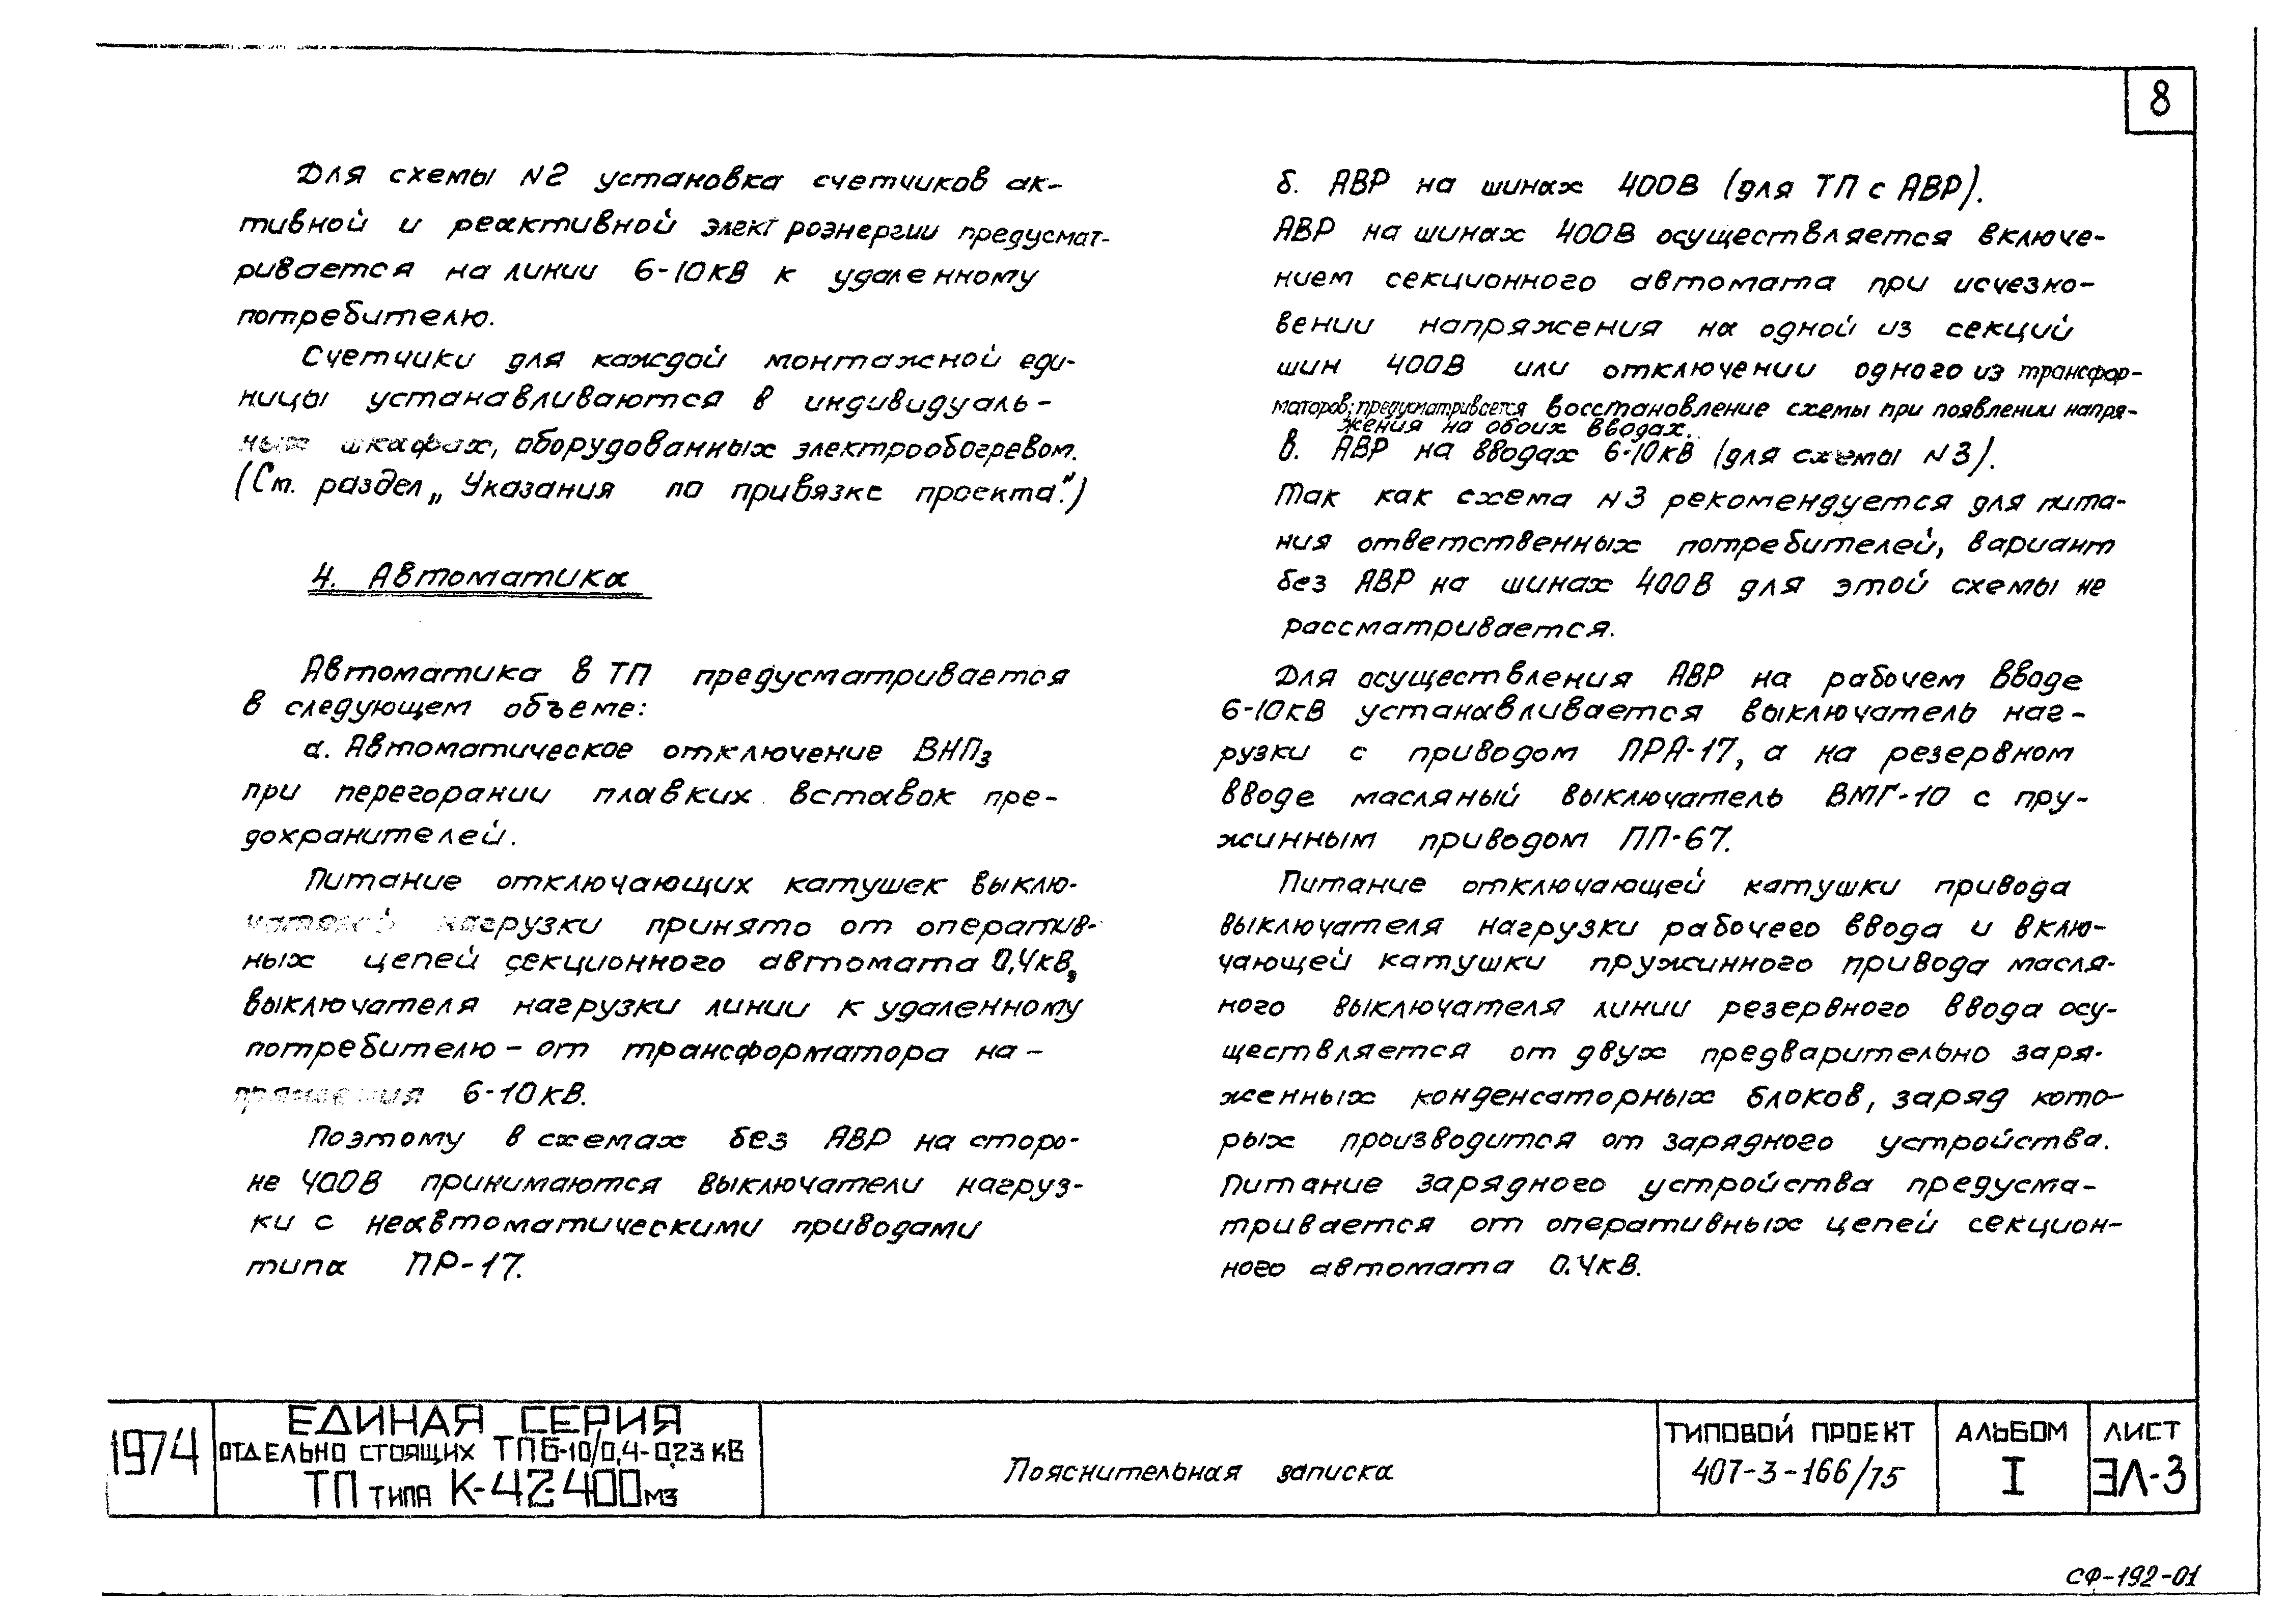 8
Для схемы N2 установка счетчиков ак-
тивной и реактивной электроэнергии предусмат-
ривается на линии 6-10кВ к удаленному
потребителю.
Счетчики для каждой монтажной еди-
ницы устанавливаются в индивидуаль-
ных шкафах, оборудованных электрообогревом.
(См. раздел „Указания по привязке проекта".)
4. Автоматика
Автоматика в ТП предусматривается
в следующем объеме:
а. Автоматическое отключение ВНПз
при перегорании плавких вставок пре-
дохранителей.
Питание отключающих катушек выклю-
чателей нагрузки принято от оператив-
ных цепей секционного автомата 0,4кВ,
выключателя нагрузки линии к удаленному
потребителю - от трансформатора на-
пряжения 6-10кВ.
Поэтому в схемах без АВР на сторо-
не 400В принимаются выключатели нагруз-
ки с неавтоматическими приводами
типа ПР-17.
б. АВР на шинах 400В (для ТП с АВР).
АВР на шинах 400В осуществляется включе-
нием секционного автомата при исчезно-
вении напряжения на одной из секций
шин 400В или отключении одного из трансфор-
маторов; предусматривсется восстановление схемы при появлении напря-
жения на обоих вводах.
в. АВР на вводах 6-10кВ (для схемы N3).
Так как схема N3 рекомендуется для пита-
ния ответственных потребителей, вариант
без АВР на шинах 400В для этой схемы не
рассматривается.
Для осуществления АВР на рабочем вводе
6-10кВ устанавливается выключатель наг-
рузки с приводом ПРА-17, а на резервном
вводе масляный выключатель ВМГ-10 с пру-
жинным приводом ПП-67.
Питание отключающей катушки привода
выключателя нагрузки рабочего ввода и вклю-
чающей катушки пружинного привода масля-
ного выключателя линии резервного ввода осу-
ществляется от двух предварительно заря-
женных конденсаторных блоков, заряд кото-
рых производится от зарядного устройства.
Питание зарядного устройства предусма-
тривается от оперативных цепей секцион-
ного автомата 0.4кВ.
1974
ЕДИНАЯ СЕРИЯ
ОТДЕЛЬНО СТОЯЩИХ ТП 6-10/0,4-0,23 КВ
ТП ТИПА К-42-400 М3
Пояснительная записка
ТИПОВОЙ ПРОЕКТ
407-3-166/75
АЛЬБОМ
I
ЛИСТ
ЭЛ-3
СФ-192-01